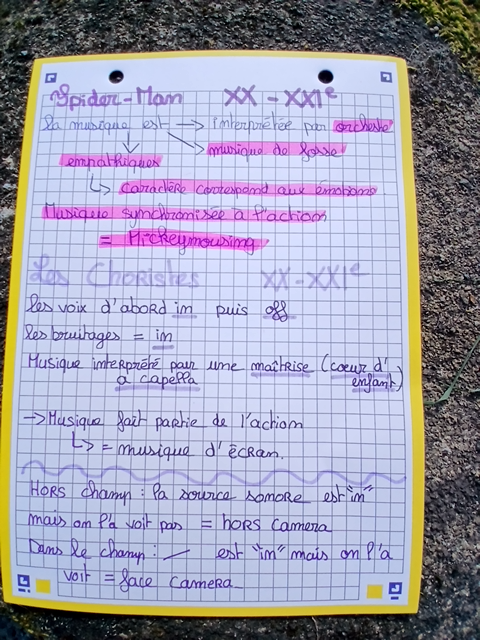 Spider-Man XX - XXIe
la musique est → interprétée par orchestre
musique de fosse
empathiques
↳ caractère correspond aux émotions
Musique synchronisée à l'action
= Mickeymousing
Les Choristes XX - XXIe
les voix d'abord im puis off
les bruitages = im
Musique interprété par une maîtrise (coeur d'
a capella enfant)
→ Musique fait partie de l'action
↳ = musique d'écran.
HORS champ : la source sonore est "in"
mais on l'a voit pas = hors camera
Dans le champ : — est "in" mais on l'a
voit = face camera